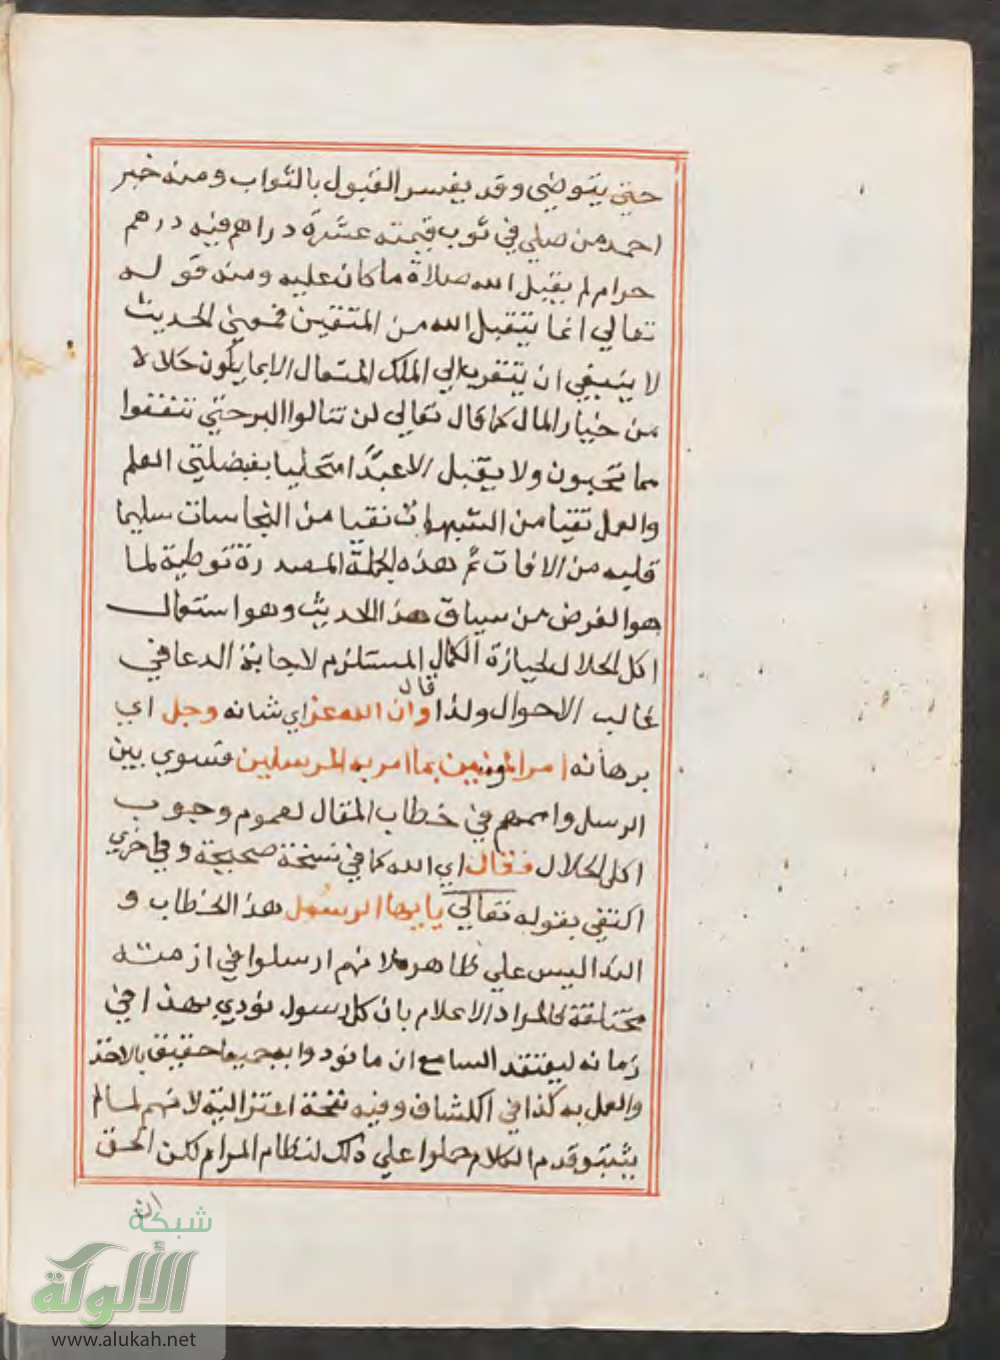 حتي يتوضي وقد يفسر القبول بالثواب ومنه خبر
احمد من صلي في ثوب قيمته عشرة دراهم فيه درهم
حرام لم يقبل الله صلاة ما كان عليه ومنه قوله
تعالي انما يتقبل الله من المتقين فمعني الحديث
لا ينبغي ان يتقرب الي الملك المتعال الا بما يكون حلالا
من خيار المال كما قال تعالي لن تنالوا البر حتي تنفقوا
مما تحبون ولا يقبل الا عبدا متحليا بفضيلتي العلم
والعمل تقيا من الشبهات نقيا من النجاسات سليما
قلبه من الافات ثم هذه الجملة المصدرة توطية لما
هو الغرض من سياق هذا الحديث وهو استعمال
اكل الحلال لحيازة الكمال المستلزم لاجابة الدعا في
غالب الاحوال ولذا قال وان الله عز اي شانه وجل اي
برهانه امر المومنين بما امر به المرسلين فسوي بين
الرسل واممهم في خطاب المقال لعموم وجوب
اكل الحلال فقال اي الله كما في نسخة صحيحة وفي اخري
اكتفي بقوله تعالي يا ايها الرسل هذا الخطاب و
الندا ليس علي ظاهره لانهم ارسلوا في ازمنته
مختلفة فالمراد الاعلام بان كل رسول نودي بهذا في
زمانه ليعتقد السامع ان ما نودوا به جميعا حقيق بالاخذ
والعمل به كذا في الكشاف وفيه نتخة اعتزالية لانهم لما لم
يثبتوا قدم الكلام حملوا علي ذلك لنظام المرام لكن الحق
ان
شبكة
الألوكة
www.alukah.net